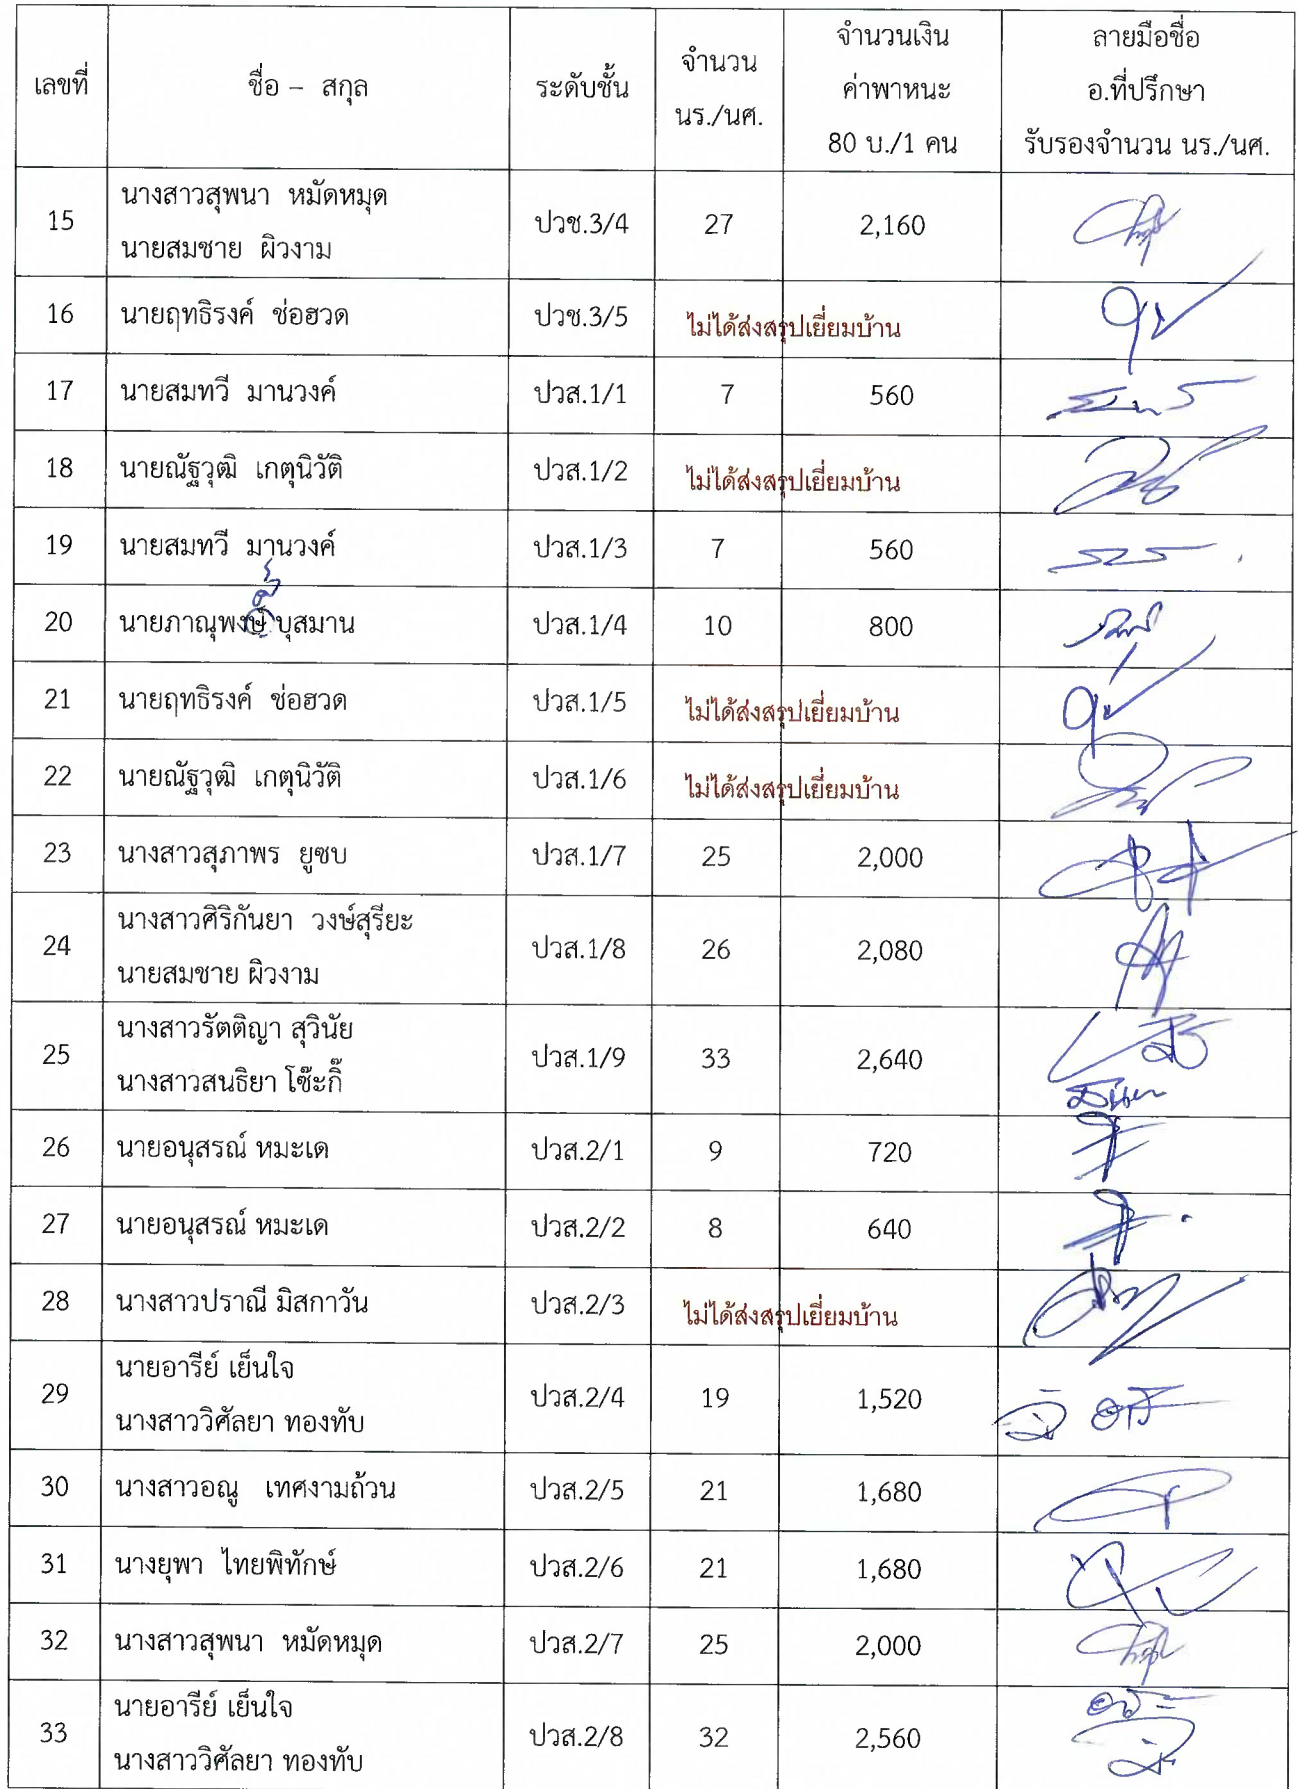 เลขที่
ชื่อ – สกุล
ระดับชั้น
จำนวน
นร./นศ.
จำนวนเงิน
ค่าพาหนะ
80 บ./1 คน
ลายมือชื่อ
อ.ที่ปรึกษา
รับรองจำนวน นร./นศ.
15 นางสาวสุพนา หมัดหมุด ปวช.3/4 27 2,160
นายสมชาย ผิวงาม
16 นายฤทธิรงค์ ช่อฮวด ปวช.3/5 ไม่ได้ส่งสรุปเยี่ยมบ้าน
17 นายสมทวี มานวงค์ ปวส.1/1 7 560
18 นายณัฐวุฒิ เกตุนิวัติ ปวส.1/2 ไม่ได้ส่งสรุปเยี่ยมบ้าน
19 นายสมทวี มานวงค์ ปวส.1/3 7 560
20 นายภาณุพงษ์ บุสมาน ปวส.1/4 10 800
21 นายฤทธิรงค์ ช่อฮวด ปวส.1/5 ไม่ได้ส่งสรุปเยี่ยมบ้าน
22 นายณัฐวุฒิ เกตุนิวัติ ปวส.1/6 ไม่ได้ส่งสรุปเยี่ยมบ้าน
23 นางสาวสุภาพร ยูซบ ปวส.1/7 25 2,000
24 นางสาวศิริกันยา วงษ์สุรียะ ปวส.1/8 26 2,080
นายสมชาย ผิวงาม
25 นางสาวรัตติญา สุวินัย ปวส.1/9 33 2,640
นางสาวสนธิยา โซ๊ะกิ๊
26 นายอนุสรณ์ หมะเด ปวส.2/1 9 720
27 นายอนุสรณ์ หมะเด ปวส.2/2 8 640
28 นางสาวปราณี มิสกาวัน ปวส.2/3 ไม่ได้ส่งสรุปเยี่ยมบ้าน
29 นายอารีย์ เย็นใจ ปวส.2/4 19 1,520
นางสาววิศัลยา ทองทับ
30 นางสาวอณู เทศงามถ้วน ปวส.2/5 21 1,680
31 นางยุพา ไทยพิทักษ์ ปวส.2/6 21 1,680
32 นางสาวสุพนา หมัดหมุด ปวส.2/7 25 2,000
33 นายอารีย์ เย็นใจ ปวส.2/8 32 2,560
นางสาววิศัลยา ทองทับ